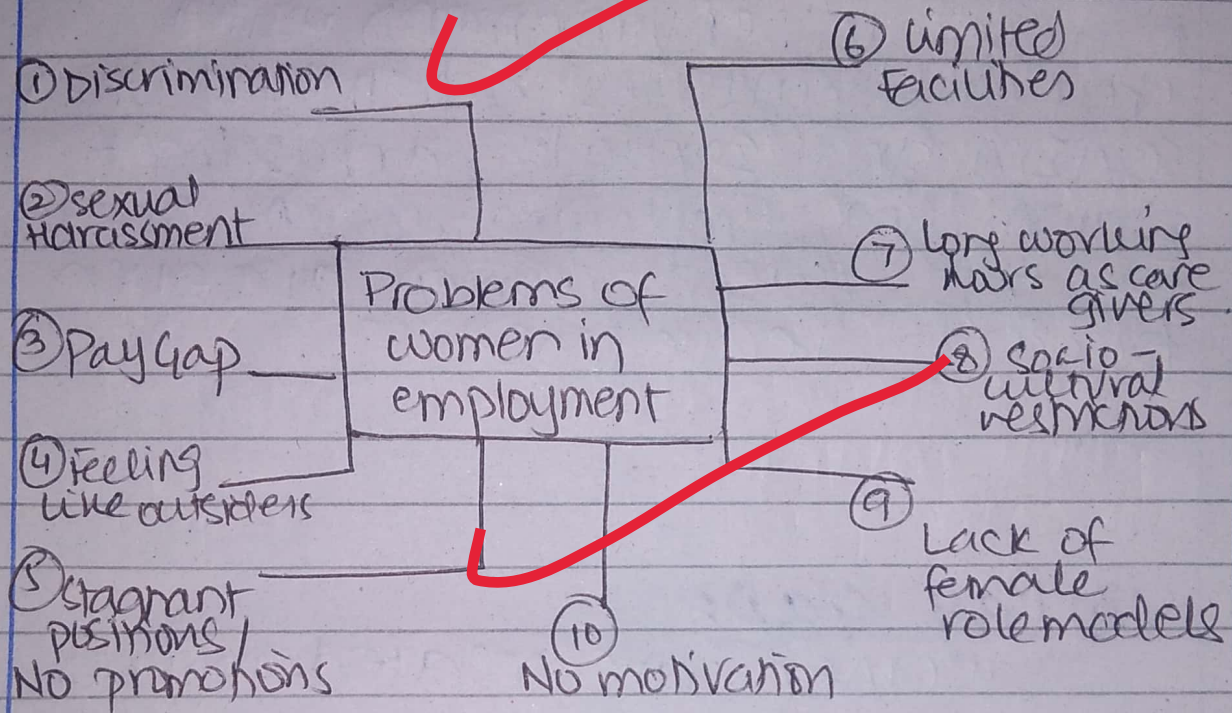 ① Discrimination
② sexual
Harassment
③ Pay Gap
④ Feeling
like outsiders
⑤ stagnant
positions /
No promotions
Problems of
women in
employment
⑥ Limited
Facilities
⑦ Long working
hours as care
givers
⑧ Socio-
cultural
restrictions
⑨
Lack of
female
role models
⑩
No motivation